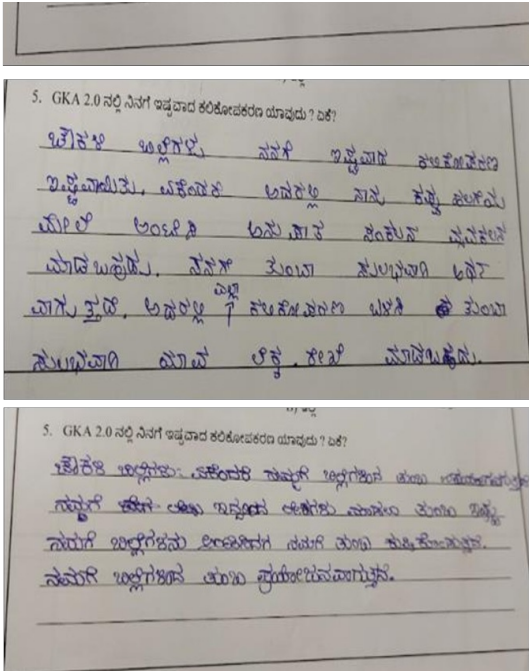 5. GKA 2.0 ನಲ್ಲಿ ನಿನಗೆ ಇಷ್ಟವಾದ ಕಲಿಕೋಪಕರಣ ಯಾವುದು? ಏಕೆ?
ಚೌಕಳಿ ಬಿಲ್ಲೆಗಳು ನನಗೆ ಇಷ್ಟವಾದ ಕಲಿಕೋಪಕರಣ
ಇಷ್ಟವಾಯಿತು. ಏಕೆಂದರೆ ಅದರಲ್ಲಿ ನಾನು ಕಪ್ಪು ಹಲಗೆಯ
ಮೇಲೆ ಅಂಟಿಸಿ ಅನುಪಾತ ಸಂಕಲನ ವ್ಯವಕಲನ
ಮಾಡಬಹುದು. ನನಗೆ ತುಂಬಾ ಸುಲಭವಾಗಿ ಅರ್ಥ
ವಾಗುತ್ತದೆ. ಅದರಲ್ಲಿ ಎಲ್ಲಾ ಕಲಿಕೋಪಕರಣ ಬಳಸಿ ತುಂಬಾ
ಸುಲಭವಾಗಿ ಯಾವ ಲೆಕ್ಕ ಬೇಕೆ ಮಾಡಬಹುದು.
5. GKA 2.0 ನಲ್ಲಿ ನಿನಗೆ ಇಷ್ಟವಾದ ಕಲಿಕೋಪಕರಣ ಯಾವುದು? ಏಕೆ?
ಚೌಕಳಿ ಬಿಲ್ಲೆಗಳು: ಏಕೆಂದರೆ ನಮ್ಮಗೆ ಬಿಲ್ಲೆಗಳಿಂದ ತುಂಬ
ನಮ್ಮಗೆ ತುಂಬ ಇಷ್ಟ
ನಮಗೆ ಬಿಲ್ಲೆಗಳನು ನಮಗೆ ತುಂಬ
ನಮಗೆ ಬಿಲ್ಲೆಗಳಿಂದ ತುಂಬ ಪ್ರಯೋಜನವಾಗುತ್ತದೆ.